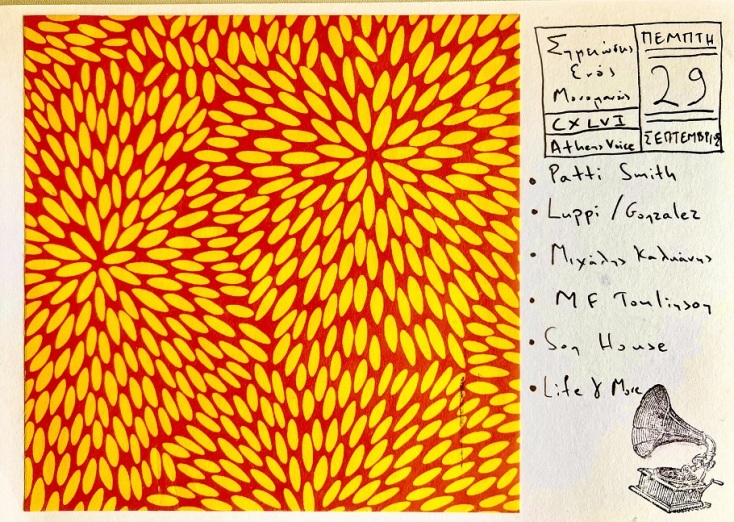 Σημειώσεις
Ενός
Μονομανούς
CXLVI
Athens Voice
ΠΕΜΠΤΗ
29
ΣΕΠΤΕΜΒΡΙΟΣ
• Patti Smith
• Luppi / Gonzalez
• Μιχάλης Καλκάνης
• M F Tomlinson
• Son House
• Life & More